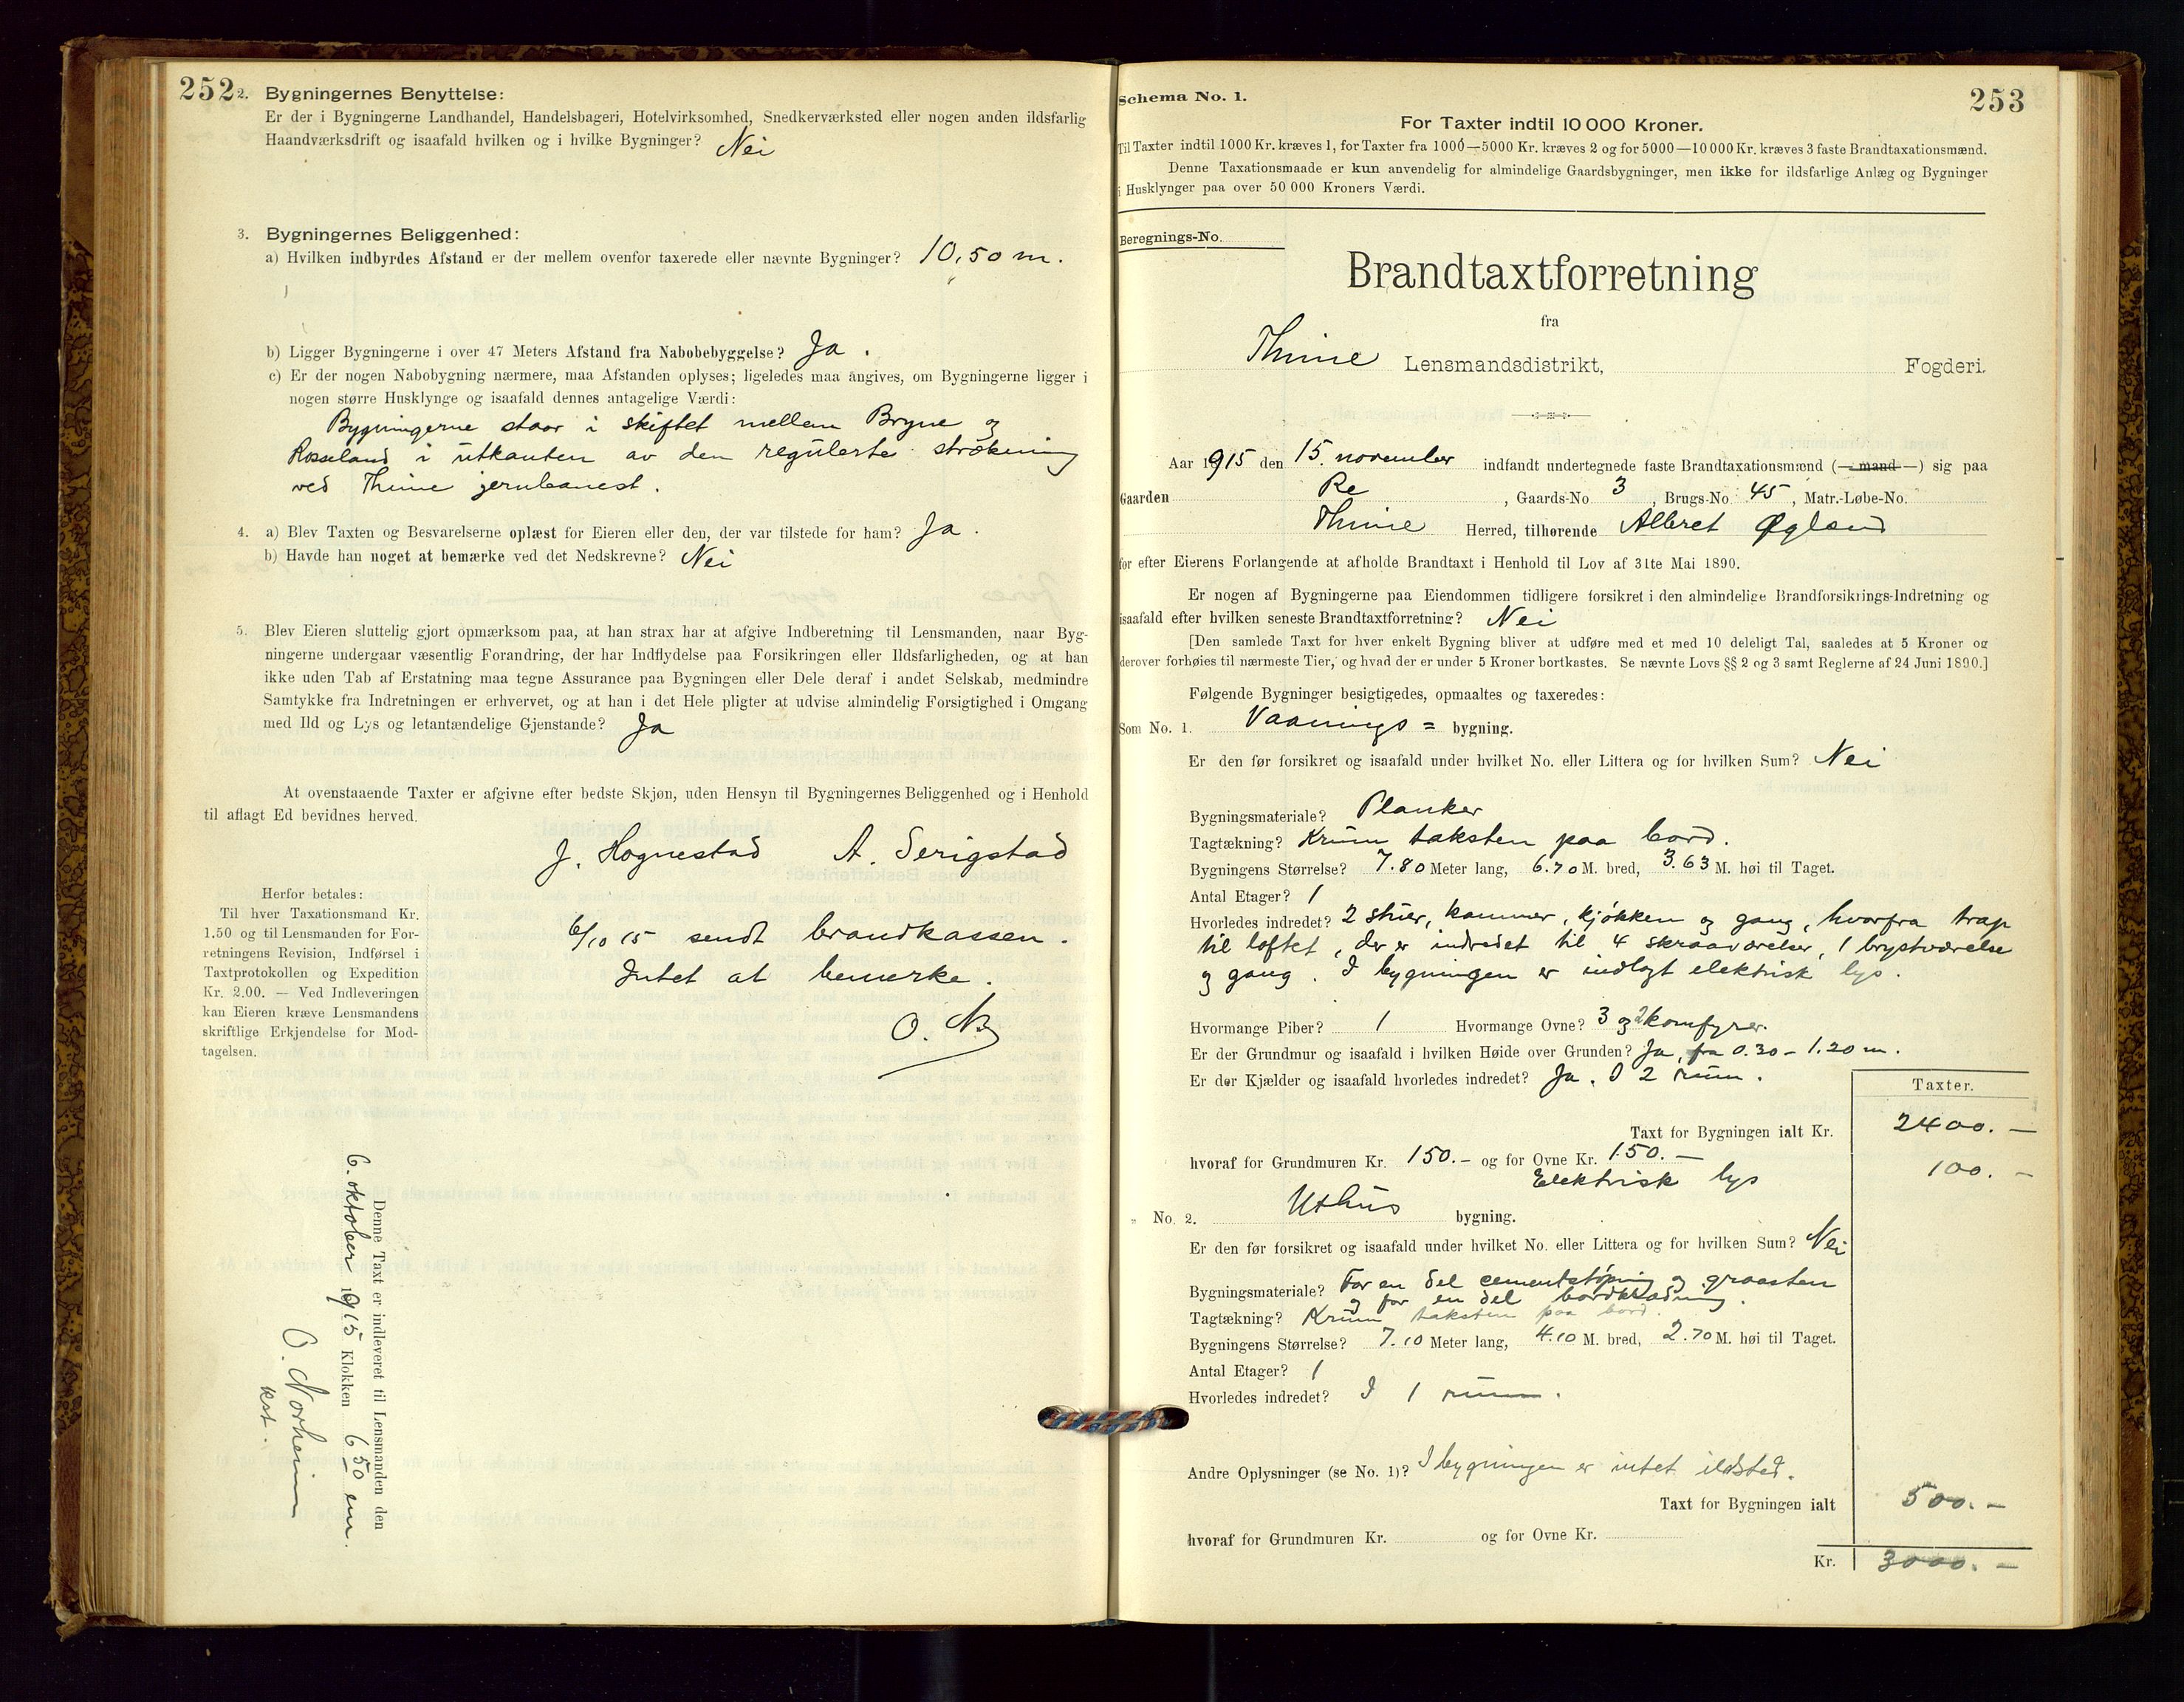 252
2. Bygningernes Benyttelse:
Er der i Bygningerne Landhandel, Handelsbageri, Hotelvirksomhed, Snedkerværksted eller nogen anden ildsfarlig
Haandværksdrift og isaafald hvilken og i hvilke Bygninger? Nei
3. Bygningernes Beliggenhed:
a) Hvilken indbyrdes Afstand er der mellem ovenfor taxerede eller nævnte Bygninger? 10,50 m.
b) Ligger Bygningerne i over 47 Meters Afstand fra Nabobebyggelse? Ja.
c) Er der nogen Nabobygning nærmere, maa Afstanden oplyses; ligeledes maa angives, om Bygningerne ligger i
nogen større Husklynge og isaafald dennes antagelige Værdi:
Bygningerne staar i skiftet mellem Bryne og
Rosseland i utkanten av den regulerte strøkning
ved Thime jernbanest.
4. a) Blev Taxten og Besvarelserne oplæst for Eieren eller den, der var tilstede for ham? Ja.
b) Havde han noget at bemærke ved det Nedskrevne? Nei
5. Blev Eieren sluttelig gjort opmærksom paa, at han strax har at afgive Indberetning til Lensmanden, naar Byg-
ningerne undergaar væsentlig Forandring, der har Indflydelse paa Forsikringen eller Ildsfarligheden, og at han
ikke uden Tab af Erstatning maa tegne Assurance paa Bygningen eller Dele deraf i andet Selskab, medmindre
Samtykke fra Indretningen er erhvervet, og at han i det Hele pligter at udvise almindelig Forsigtighed i Omgang
med Ild og Lys og letantændelige Gjenstande? Ja
At ovenstaaende Taxter er afgivne efter bedste Skjøn, uden Hensyn til Bygningernes Beliggenhed og i Henhold
til aflagt Ed bevidnes herved.
J. Hognestad A. Serigstad
Herfor betales:
Til hver Taxationsmand Kr.
1.50 og til Lensmanden for For-
retningens Revision, Indførsel i
Taxtprotokollen og Expedition
Kr. 2.00. — Ved Indleveringen
kan Eieren kræve Lensmandens
skriftlige Erkjendelse for Mod-
tagelsen.
6/10 15 sendt brandkassen.
Intet at bemerke.
O. N
Denne Taxt er indleveret til Lensmanden den
6. oktober 1915 Klokken 6 50 em.
O. Norheim
kst.
253
Schema No. 1.
For Taxter indtil 10 000 Kroner.
Til Taxter indtil 1000 Kr. kræves 1, for Taxter fra 1000—5000 Kr. kræves 2 og for 5000—10 000 Kr. kræves 3 faste Brandtaxationsmænd.
Denne Taxationsmaade er kun anvendelig for almindelige Gaardsbygninger, men ikke for ildsfarlige Anlæg og Bygninger
i Husklynger paa over 50 000 Kroners Værdi.
Beregnings-No.
Brandtaxtforretning
fra
Thime Lensmandsdistrikt, Fogderi.
Aar 1915 den 15. november indfandt undertegnede faste Brandtaxationsmænd (—mand—) sig paa
Gaarden Re, Gaards-No 3, Brugs-No 45, Matr.-Løbe-No.
Thime Herred, tilhørende Albret Øgland
for efter Eierens Forlangende at afholde Brandtaxt i Henhold til Lov af 31te Mai 1890.
Er nogen af Bygningerne paa Eiendommen tidligere forsikret i den almindelige Brandforsikrings-Indretning og
isaafald efter hvilken seneste Brandtaxtforretning? Nei
[Den samlede Taxt for hver enkelt Bygning bliver at udføre med et med 10 deleligt Tal, saaledes at 5 Kroner og
derover forhøies til nærmeste Tier, og hvad der er under 5 Kroner bortkastes. Se nævnte Lovs §§ 2 og 3 samt Reglerne af 24 Juni 1890.]
Følgende Bygninger besigtigedes, opmaaltes og taxeredes:
Som No. 1. Vaanings= bygning.
Er den før forsikret og isaafald under hvilket No. eller Littera og for hvilken Sum? Nei
Bygningsmateriale? Planker
Tagtækning? Krum taksten paa bord.
Bygningens Størrelse? 7.80 Meter lang, 6.70 M. bred, 3.63 M. høi til Taget.
Antal Etager? 1
Hvorledes indredet? 2 stuer, kammer, kjøkken og gang, hvorfra trap
til loftet, der er indredet til 4 skraaværelser, 1 brystværelse
og gang. I bygningen er indlagt elektrisk lys.
Hvormange Piber? 1 Hvormange Ovne? 3 og 2 komfyrer.
Er der Grundmur og isaafald i hvilken Høide over Grunden? Ja, fra 0.30 - 1.20 m.
Er der Kjælder og isaafald hvorledes indredet? Ja. I 2 rum.
Taxter.
Taxt for Bygningen ialt Kr. 2400. —
hvoraf for Grundmuren Kr. 150.— og for Ovne Kr. 150. —
Elektrisk lys 100. —
„ No. 2. Uthus bygning.
Er den før forsikret og isaafald under hvilket No. eller Littera og for hvilken Sum? Nei
Bygningsmateriale? For en del cementstøpning og graasten
og for en del bordklædning.
Tagtækning? Krum taksten paa bord.
Bygningens Størrelse? 7.10 Meter lang, 4.10 M. bred, 2.70 M. høi til Taget.
Antal Etager? 1
Hvorledes indredet? I 1 rum.
Andre Oplysninger (se No. 1)? I bygningen er intet ildsted.
Taxt for Bygningen ialt 500. —
hvoraf for Grundmuren Kr. og for Ovne Kr.
Kr. 3000. —